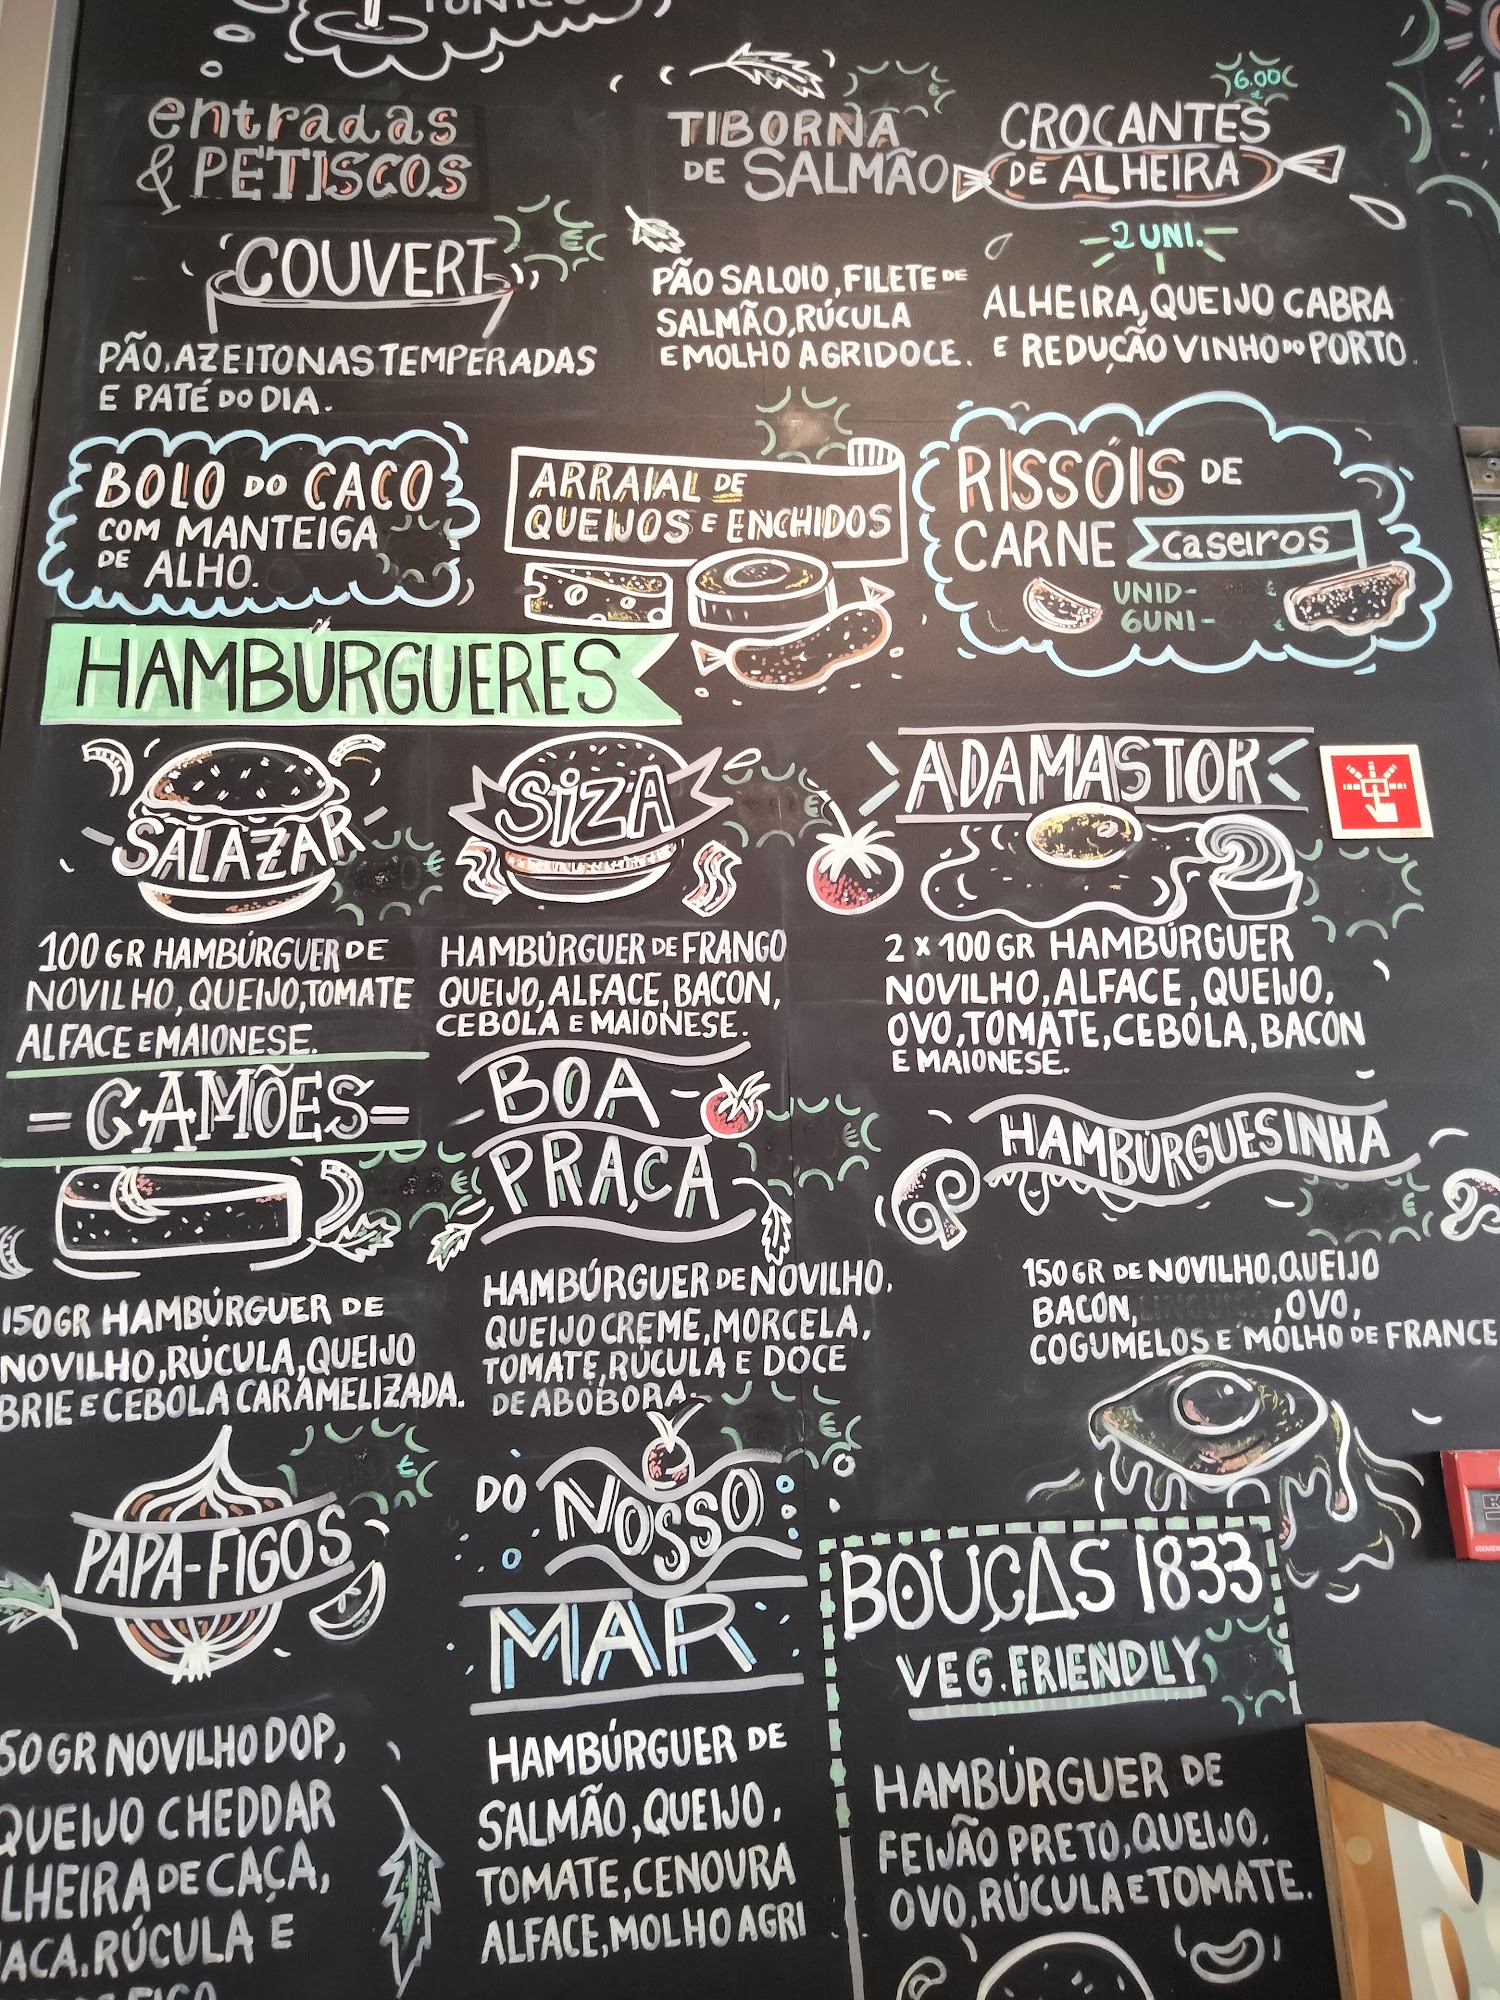 entradas
& PETISCOS
COUVERT
€
PÃO, AZEITONAS TEMPERADAS
E PATÉ DO DIA.
TIBORNA
DE SALMÃO
€
PÃO SALOIO, FILETE DE
SALMÃO, RÚCULA
E MOLHO AGRIDOCE.
6.00
€
CROCANTES
DE ALHEIRA
2 UNI.
ALHEIRA, QUEIJO CABRA
E REDUÇÃO VINHO DO PORTO.
BOLO DO CACO
COM MANTEIGA
DE ALHO.
ARRAIAL DE
QUEIJOS E ENCHIDOS
RISSÓIS DE
CARNE caseiros
UNID-
6UNI-
HAMBÚRGUERES
SALAZAR
€
100 GR HAMBÚRGUER DE
NOVILHO, QUEIJO, TOMATE
ALFACE E MAIONESE.
SIZA
€
HAMBÚRGUER DE FRANGO
QUEIJO, ALFACE, BACON,
CEBOLA E MAIONESE.
ADAMASTOR
2 x 100 GR HAMBÚRGUER
NOVILHO, ALFACE, QUEIJO,
OVO, TOMATE, CEBOLA, BACON
E MAIONESE.
CAMÕES
€
150GR HAMBÚRGUER DE
NOVILHO, RÚCULA, QUEIJO
BRIE E CEBOLA CARAMELIZADA.
BOA
PRAÇA
€
HAMBÚRGUER DE NOVILHO,
QUEIJO CREME, MORCELA,
TOMATE, RÚCULA E DOCE
DE ABÓBORA.
HAMBÚRGUESINHA
€
150 GR DE NOVILHO, QUEIJO
BACON, , OVO,
COGUMELOS E MOLHO DE FRANCE
PAPA-FIGOS
€
50GR NOVILHO DOP,
QUEIJO CHEDDAR
LHEIRA DE CAÇA,
ACA, RÚCULA E
DO NOSSO
MAR
€
HAMBÚRGUER DE
SALMÃO, QUEIJO,
TOMATE, CENOURA
ALFACE, MOLHO AGRI
BOUÇAS 1833
VEG. FRIENDLY
HAMBÚRGUER DE
FEIJÃO PRETO, QUEIJO,
OVO, RÚCULA E TOMATE.